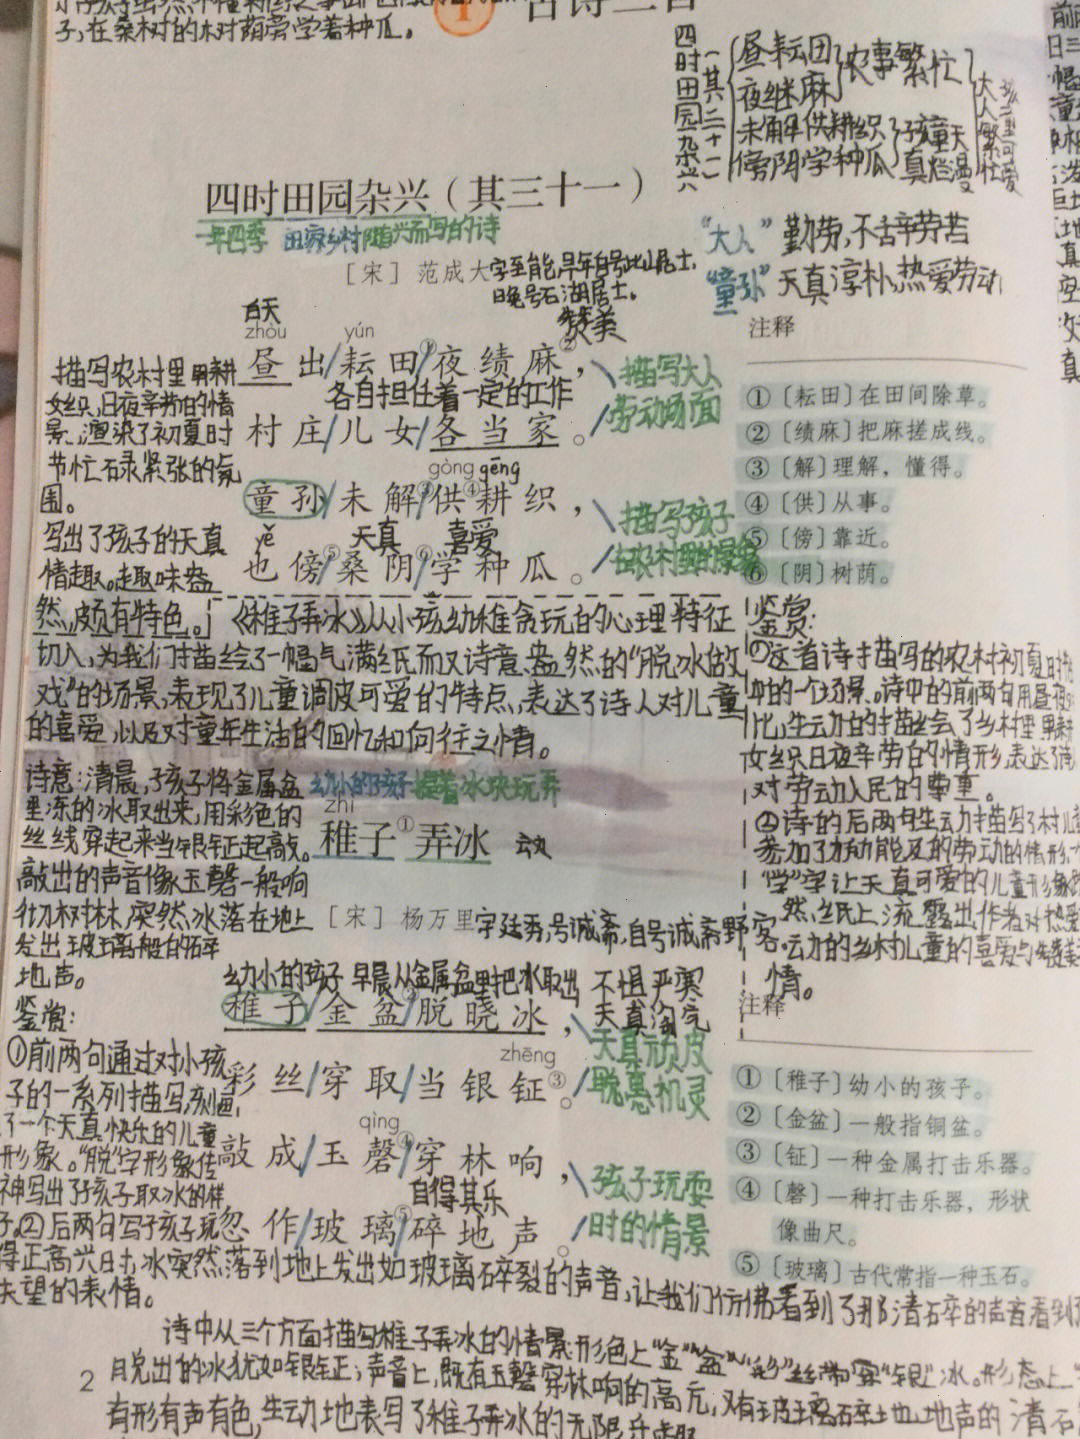 子,在桑树的树荫旁学着种瓜。
1 古诗三首
四时田园杂兴
其三十一
昼耘田
夜绩麻
农事繁忙
未解供耕织
傍阴学种瓜
孩童天真烂漫
大人繁忙
孩童可爱
四时田园杂兴（其三十一）
一年四季 田家乡村 随兴而写的诗
“大人” 勤劳,不舌辛劳苦
“童孙” 天真淳朴,热爱劳动
［宋］范成大 字至能,早年自号此山居士,
晚号石湖居士。
白天
赞美
zhòu yún
昼出/耘田①/夜绩麻②，
各自担任着一定的工作
村庄/儿女/各当家。
描写大人
劳动场面
gòng gēng
童孙/未解③/供④耕织，
yě 天真 喜爱
也傍⑤/桑阴⑥/学种瓜。
描写孩子
在农村里的景象
描写农村里男耕
女织,日夜辛劳的情
景,渲染了初夏时
节忙碌紧张的氛
围。
写出了孩子的天真
情趣。趣味盎
然,颇有特色。
注释
①〔耘田〕在田间除草。
②〔绩麻〕把麻搓成线。
③〔解〕理解，懂得。
④〔供〕从事。
⑤〔傍〕靠近。
⑥〔阴〕树荫。
《稚子弄冰》从小孩幼稚贪玩的心理特征
切入,为我们描绘了一幅气满纸而又诗意盎然的“脱冰做
戏”的场景,表现了儿童调皮可爱的特点,表达了诗人对儿童
的喜爱,以及对童年生活的回忆和向往之情。
鉴赏:
①这首诗描写的农村初夏时
中的一个场景。诗中的前两句用昼夜
比,生动的描绘了乡村里男耕
女织日夜辛劳的情形,表达了
对劳动人民的尊重。
②诗的后两句生动描写了村儿童
参加了力所能及的劳动的情形,
“学”字让天真可爱的儿童形象跃
然纸上,流露出作者对热爱
劳动的乡村儿童的喜爱与赞美
情。
诗意:清晨,孩子将金属盆
里冻的冰取出来,用彩色的
丝线穿起来当银钲起敲。
敲出的声音像玉磬一般响
彻树林,突然,冰落在地上
发出玻璃般的碎
地声。
幼小的孩子 提着冰块玩弄
zhì
稚子①弄冰
［宋］杨万里 字廷秀,号诚斋,自号诚斋野客。
幼小的孩子 早晨从金属盆里把冰取出
稚子/金盆②/脱晓冰，
不惧严寒
天真淘气
天真顽皮
聪慧机灵
zhēng
彩丝/穿取/当银钲③。
qìng
敲成/玉磬④/穿林响，
自得其乐
忽作/玻璃⑤/碎地声。
孩子玩耍
时的情景
鉴赏:
①前两句通过对小孩
子的一系列描写,刻画
了一个天真快乐的儿童
形象。“脱”字形象传
神写出了孩子取冰的样
子。②后两句写子孩子玩
得正高兴时,冰突然落到地上发出如玻璃碎裂的声音,让我们仿佛看到了那清碎的声音看到
失望的表情。
注释
①〔稚子〕幼小的孩子。
②〔金盆〕一般指铜盆。
③〔钲〕一种金属打击乐器。
④〔磬〕一种打击乐器，形状
像曲尺。
⑤〔玻璃〕古代常指一种玉石。
诗中从三个方面描写稚子弄冰的情景:形色上“金”盆“彩”丝带穿“银”冰。形态上
月脱出的冰犹如银钲;声音上,既有玉磬穿林响的高亢,又有玻璃碎地地声的清
有形有声有色,生动地表写了稚子弄冰的无限乐趣
2